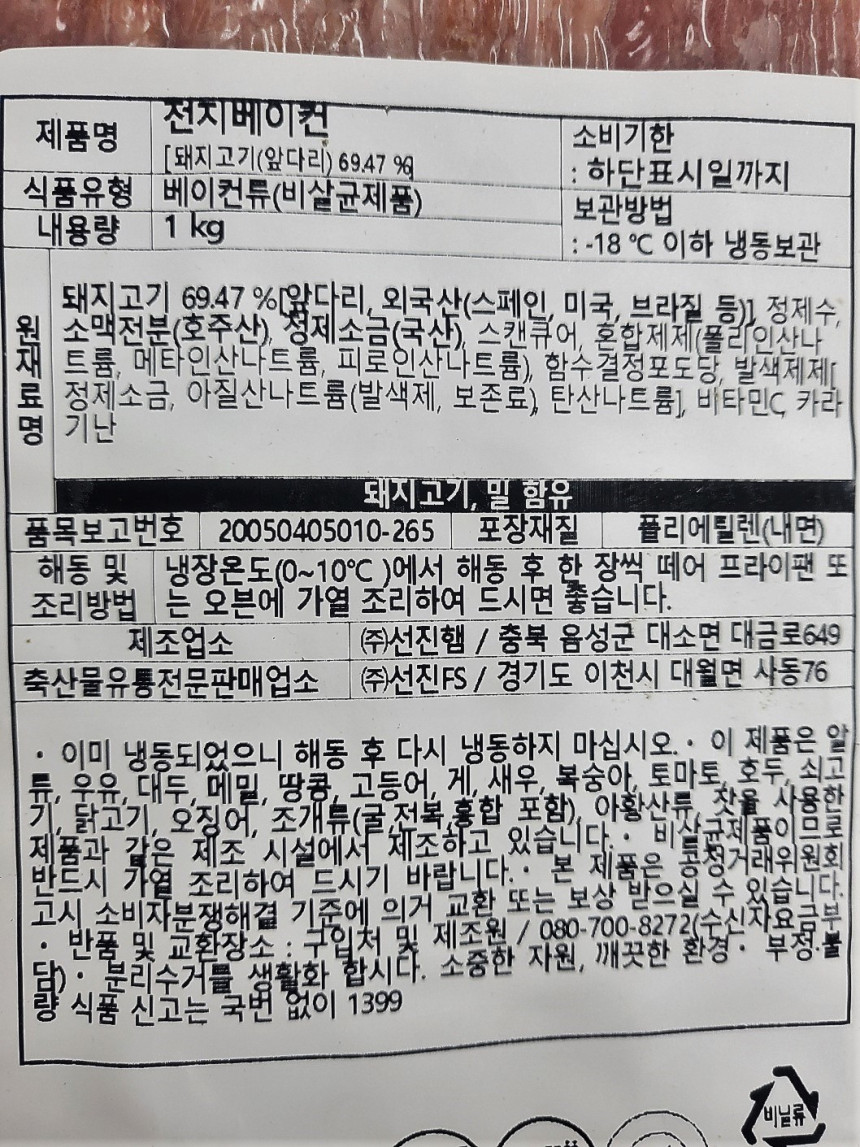 제품명
전지베이컨
[돼지고기(앞다리) 69.47 %]
소비기한
: 하단표시일까지
식품유형
베이컨류(비살균제품)
보관방법
: -18 ℃ 이하 냉동보관
내용량
1 kg
원재료명
돼지고기 69.47 %[앞다리, 외국산(스페인, 미국, 브라질 등)], 정제수,
소맥전분(호주산), 정제소금(국산), 스캔큐어, 혼합제제(폴리인산나
트륨, 메타인산나트륨, 피로인산나트륨), 함수결정포도당, 발색제제[
정제소금, 아질산나트륨(발색제, 보존료), 탄산나트륨], 비타민C, 카라
기난
돼지고기, 밀 함유
품목보고번호 20050405010-265 포장재질 폴리에틸렌(내면)
해동 및
조리방법
냉장온도(0~10℃)에서 해동 후 한 장씩 떼어 프라이팬 또
는 오븐에 가열 조리하여 드시면 좋습니다.
제조업소 ㈜선진햄 / 충북 음성군 대소면 대금로649
축산물유통전문판매업소 ㈜선진FS / 경기도 이천시 대월면 사동76
· 이미 냉동되었으니 해동 후 다시 냉동하지 마십시오. · 이 제품은 알
류, 우유, 대두, 메밀, 땅콩, 고등어, 게, 새우, 복숭아, 토마토, 호두, 쇠고
기, 닭고기, 오징어, 조개류(굴,전복,홍합 포함), 아황산류, 잣을 사용한
제품과 같은 제조 시설에서 제조하고 있습니다. · 비살균제품이므로
반드시 가열 조리하여 드시기 바랍니다. · 본 제품은 공정거래위원회
고시 소비자분쟁해결 기준에 의거 교환 또는 보상 받으실 수 있습니다.
· 반품 및 교환장소 : 구입처 및 제조원 / 080-700-8272(수신자요금부
담) · 분리수거를 생활화 합시다. 소중한 자원, 깨끗한 환경 · 부정·불
량 식품 신고는 국번 없이 1399
비닐류